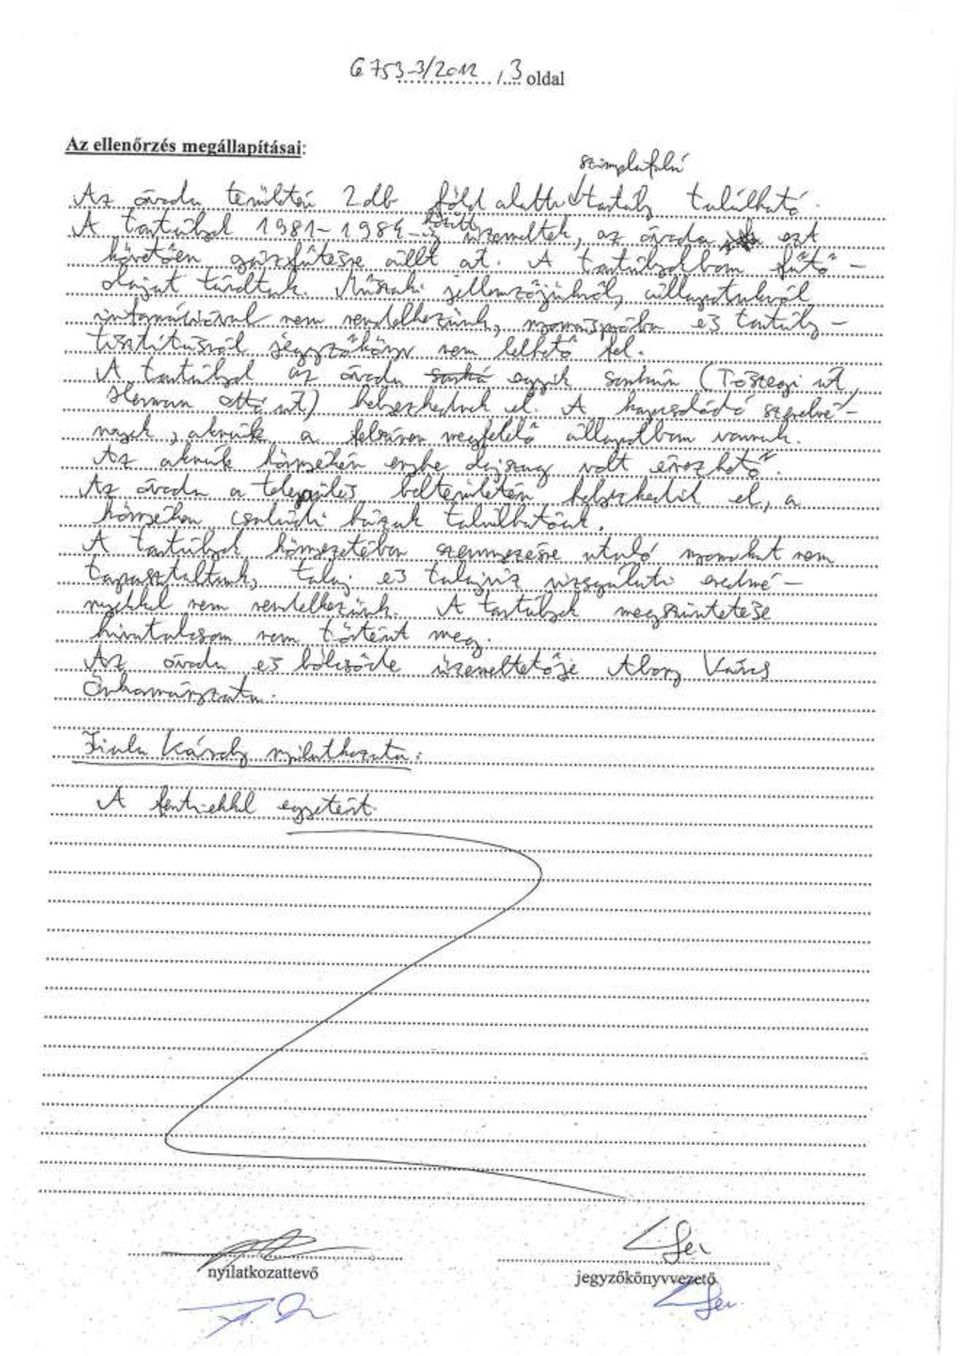 G 753-3/2012 / 3 oldal
Az ellenőrzés megállapításai:
szimplafalú
Az óvoda területén 2 db föld alatti tartály található.
A tartályok 1981-1984 között üzemeltek, az óvoda ezt
követően gázfűtésre állt át. A tartályokban fűtő-
olajat tároltak. Műszaki jellemzőjükről, állapotukról
információval nem rendelkezünk, nyomáspróba és tartály-
tisztításról jegyzőkönyv nem lelhető fel.
A tartályok az óvoda sarká egyik sarkán (Tószegi út,
Herman Ottó út) helyezkednek el. A kapcsolódó szerelvé-
nyek, aknák a felszínen megfelelő állapotban vannak.
Az aknák környékén enyhe olajszag volt érezhető.
Az óvoda a település belterületén helyezkedik el, a
környéken családi házak találhatóak.
A tartályok környezetében szennyezésre utaló nyomokat nem
tapasztaltunk, talaj és talajvíz vizsgálati eredmé-
nyekkel nem rendelkezünk. A tartályok megszüntetése
hivatalosan nem történt meg.
Az óvoda és bölcsőde üzemeltetője Abony Város
Önkormányzata.
Károly nyilatkozata:
A fentiekkel egyetért.
nyilatkozattevő
jegyzőkönyvvezető